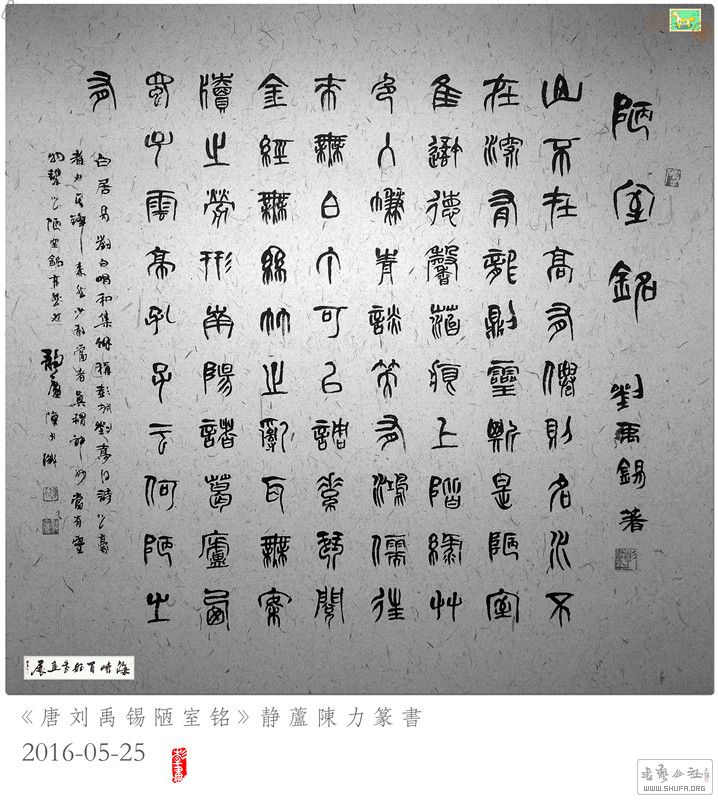 陋室銘 劉禹錫著
山不在高有僊則名水不
在深有龍則靈斯是陋室
隹吾德馨苔痕上階綠艸
色入簾青談笑有鴻儒往
来無白丁可以調素琴閱
金經無絲竹之亂耳無案
牘之勞形南陽諸葛廬西
蜀子雲亭孔子云何陋之
有
白居易劉白唱和集解稱彭城劉夢得詩之豪
者也其鋒森然少敢當者真謂神妙當有靈
物護之陋室銘
静廬陳力
《唐刘禹锡陋室铭》静蘆陳力篆書
2016-05-25
WWW.SHUFA.ORG